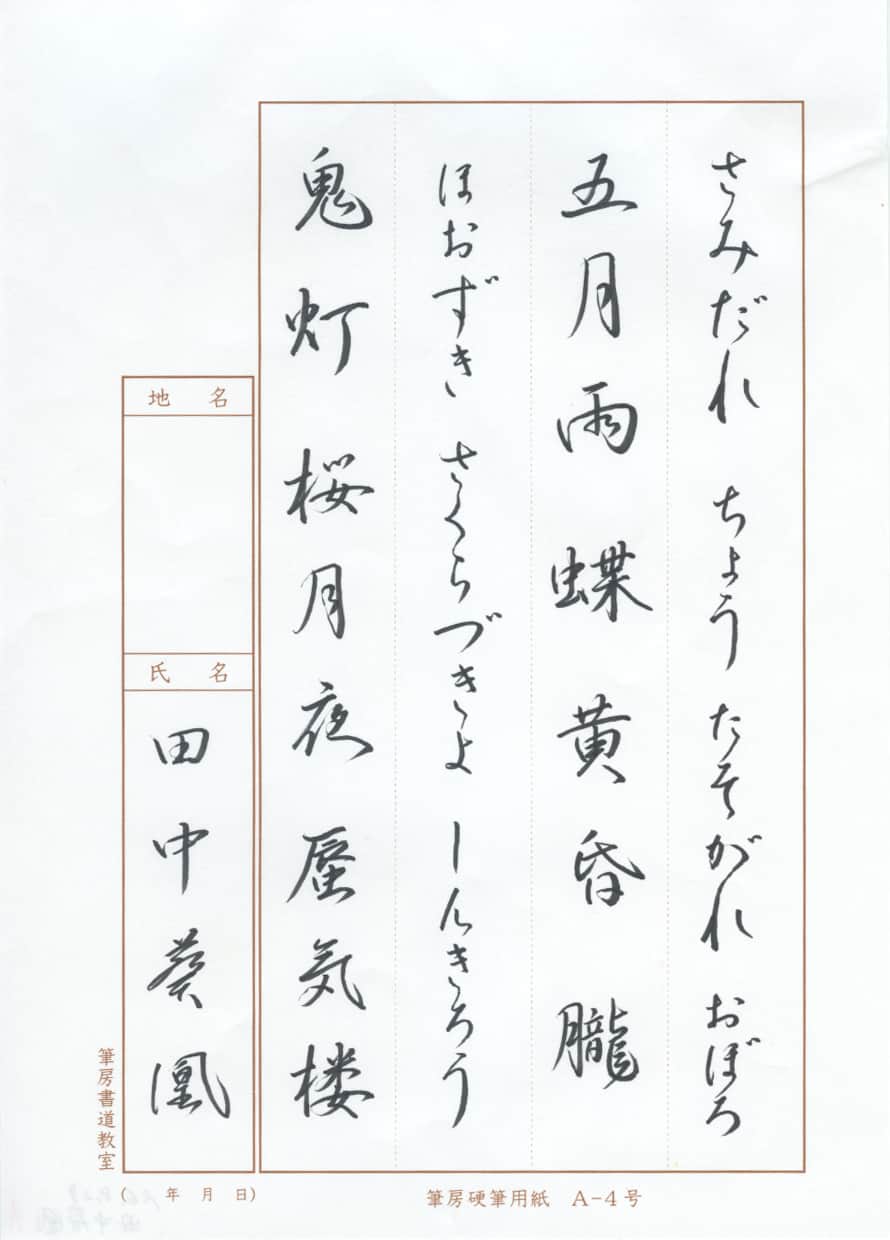 さみだれ ちょう たそがれ おぼろ
五月雨 蝶 黄昏 朧
ほおずき さくらづきよ しんきろう
鬼灯 桜月夜 蜃気楼
地名
氏名
田中葵凰
筆房書道教室
( 年 月 日)
筆房硬筆用紙 A-4号